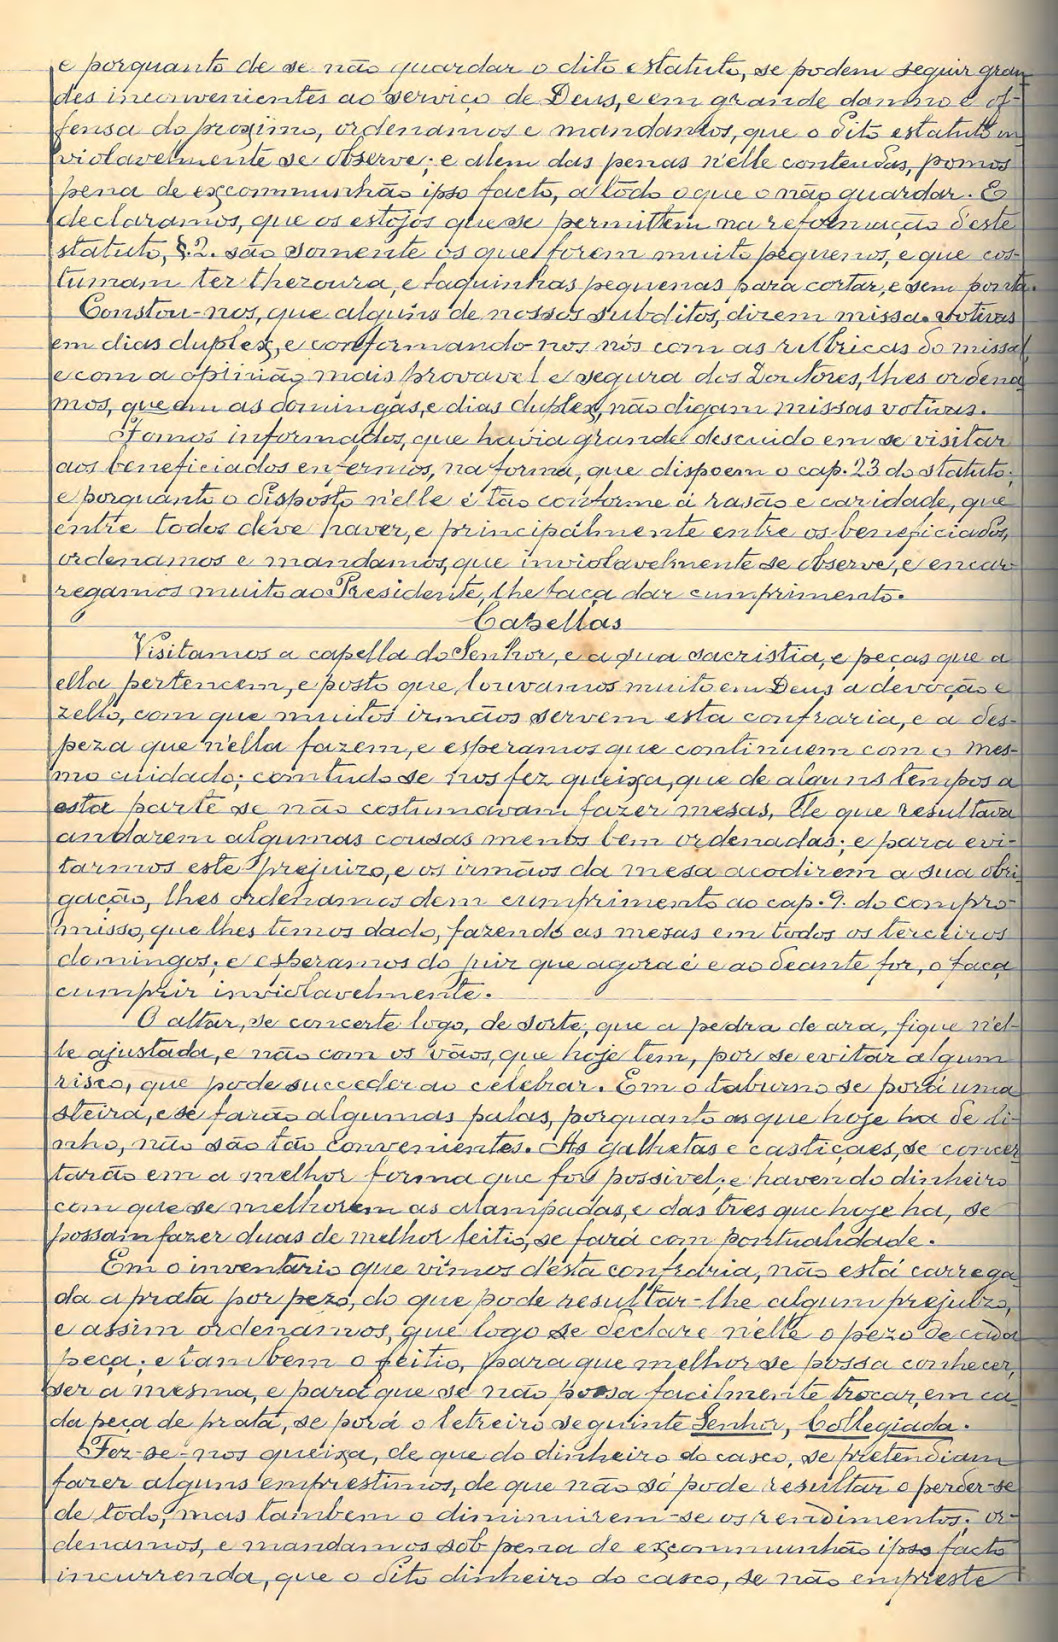 e porquanto de se não guardar o dito estatuto, se podem seguir gran
des inconvenientes ao serviço de Deus, e em grande damno e of-
fensa do proximo, ordenamos e mandamos, que o dito estatuto in
violavelmente se observe; e alem das penas n'elle contendas, pomos
pena de excommunhão ipso facto, a todo o que o não guardar. E
declaramos, que os estojos que se permittem na reformação d'este
statuto, §. 2. são somente os que forem muito pequenos, e que cos-
tumam ter thezoura, e faquinhas pequenas para cortar, e sem ponta.
Constou-nos, que alguns de nossos subditos, dizem missas votivas
em dias duplex, e conformando-nos nós com as rubricas do missal,
e com a opinião mais provavel e segura dos Doutores, lhes ordena
mos, que em as domingas, e dias duplex, não digam missas votivas.
Fomos informados, que havia grande descuido em se visitar
aos beneficiados enfermos, na forma, que dispoem o cap. 23 do statuto;
e porquanto o disposto n'elle é tão conforme á rasão e caridade, que
entre todos deve haver, e principalmente entre os beneficiados,
ordenamos e mandamos, que inviolavelmente se observe, e encar
regamos muito ao Presidente, lhe faça dar cumprimento.
Capellas
Visitamos a capella do Senhor, e a sua sacristia, e peças que a
ella pertencem, e posto que louvamos muito em Deus a devoção e
zello, com que muitos irmãos servem esta confraria, e a des-
peza que n'ella fazem, e esperamos que continuem com o mes-
mo cuidado; comtudo se nos fez queixa, que de alguns tempos a
esta parte se não costumavam fazer mesas, de que resultava
andarem algumas cousas menos bem ordenadas; e para evi-
tarmos este prejuizo, e os irmãos da mesa acodirem a sua obri
gação, lhes ordenamos dem cumprimento ao cap. 9. do compro-
misso, que lhes temos dado, fazendo as mesas em todos os terceiros
domingos; e esperamos do juiz que agora é e ao deante for, o faça
cumprir inviolavelmente.
O altar, se concerte logo, de sorte, que a pedra de ara, fique n'el-
le ajustada, e não com os vãos, que hoje tem, por se evitar algum
risco, que pode succeder ao celebrar. Em o taburno se porá uma
steira, e se farão algumas palas, porquanto as que hoje ha de li-
nho, não são tão convenientes. As galhetas e castiçaes, se concer
tarão em a melhor forma que for possivel; e havendo dinheiro
com que se melhorem as alampadas, e das tres que hoje ha, se
possam fazer duas de melhor feitio, se fará com pontualidade.
Em o inventario que vimos d'esta confraria, não está carrega
da a prata por pezo, do que pode resultar-lhe algum prejuizo,
e assim ordenamos, que logo se declare n'elle o pezo de cada
peça; e tambem o feitio, para que melhor se possa conhecer,
ser a mesma, e para que se não possa facilmente trocar, em ca
da peça de prata, se porá o letreiro seguinte Senhor, Collegiada.
Fez-se-nos queixa, de que do dinheiro do casco, se pretendiam
fazer alguns emprestimos, de que não só pode resultar o perder-se
de todo, mas tambem o diminuirem-se os rendimentos; or-
denamos, e mandamos sob pena de excommunhão ipso facto
incurrenda, que o dito dinheiro do casco, se não empreste